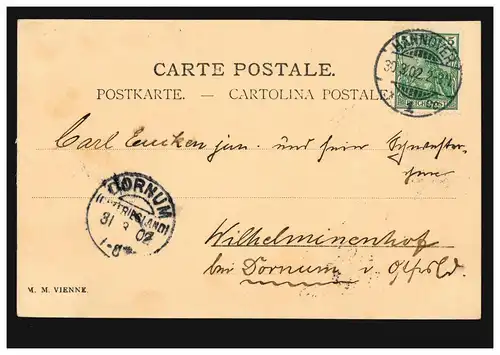 HANNOVER
30.3.02. 2-3N
* 1 *
5
CARTE POSTALE.
POSTKARTE. — CARTOLINA POSTALE
Carl Eucken jun. und sein Schwester-
DORNUM
(OSTFRIESLAND)
31 3 02
7-8V
Wilhelminenhof
bei Dornum i. Ostfrld.
M. M. VIENNE.